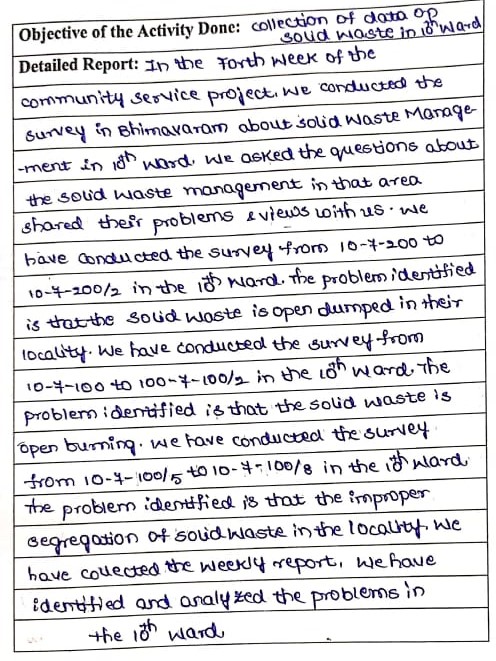 Objective of the Activity Done: collection of data op
solid waste in 10th ward
Detailed Report: In the Forth week of the
community service project, we conducted the
survey in Bhimavaram about solid waste Manage-
-ment in 10th ward. We asked the questions about
the solid waste management in that area
shared their problems & views with us. We
have conducted the survey from 10-7-200 to
10-7-200/2 in the 10th ward. The problem identified
is that the solid waste is open dumped in their
locality. We have conducted the survey from
10-7-100 to 100-7-100/2 in the 10th ward. The
problem identified is that the solid waste is
open burning. We have conducted the survey
from 10-7-100/5 to 10-7-100/8 in the 10th ward.
The problem identified is that the improper
segregation of solid waste in the locality. We
have collected the weekly report, We have
identified and analyzed the problems in
the 10th ward